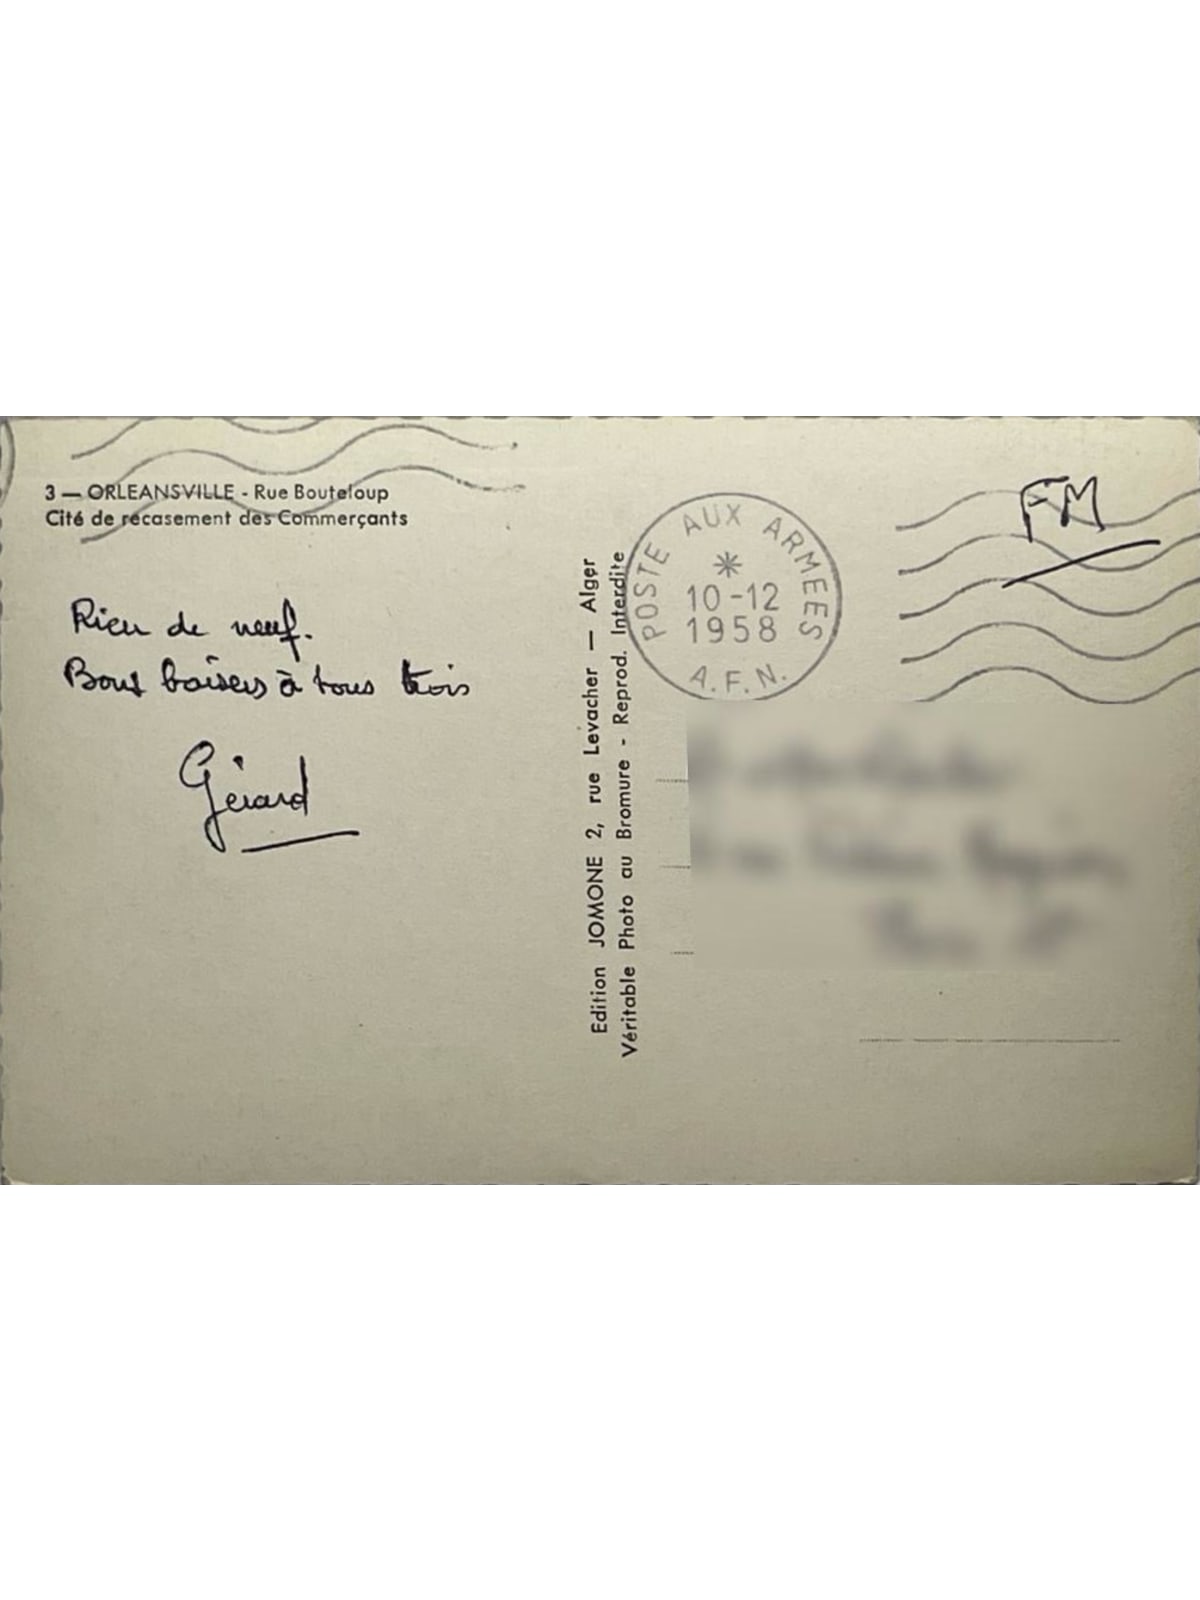 3 — ORLEANSVILLE - Rue Bouteloup
Cité de recasement des Commerçants
Rien de neuf.
Bons baisers à tous trois
Gérard
Edition JOMONE 2, rue Levacher — Alger
Véritable Photo au Bromure - Reprod. Interdite
POSTE AUX ARMEES
10-12
1958
A.F.N.
FM